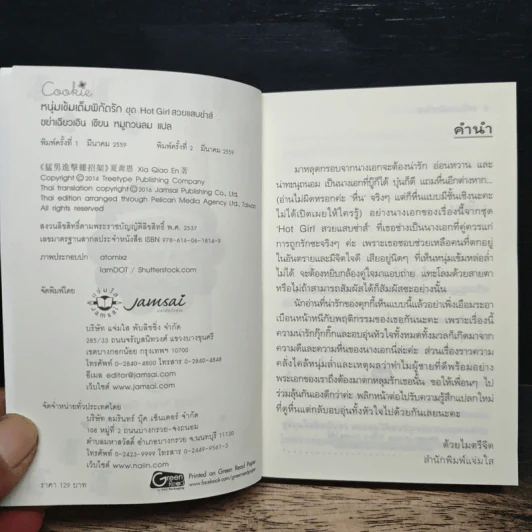 Cookie
หนุ่มเข้มเต็มพิกัดรัก ชุด Hot Girl สวยแสบซ่าส์
เซี่ยเฉียวเอิน เขียน หมูกวนลม แปล
พิมพ์ครั้งที่ 1 มีนาคม 2559 พิมพ์ครั้งที่ 2 มีนาคม 2559
《猛男進擊難招架》夏喬恩 Xia Qiao En 著
Copyright © 2014 Treetype Publishing Company
Thai translation copyright © 2016 Jamsai Publishing Co., Ltd.
Thai edition arranged through Pelican Media Agency Ltd., Taiwan
All rights reserved
สงวนลิขสิทธิ์ตามพระราชบัญญัติลิขสิทธิ์ พ.ศ. 2537
เลขมาตรฐานสากลประจำหนังสือ ISBN 978-616-06-1814-9
ภาพประกอบปก atomixz
IamDOT / Shutterstock.com
จัดพิมพ์โดย
jamsai
บริษัท แจ่มใส พับลิชชิ่ง จำกัด
285/33 ถนนจรัญสนิทวงศ์ แขวงบางขุนศรี
เขตบางกอกน้อย กรุงเทพฯ 10700
โทรศัพท์ 0-2840-4800 โทรสาร 0-2840-4848
อีเมล editor@jamsai.com
เว็บไซต์ www.jamsai.com
จัดจำหน่ายทั่วประเทศโดย
บริษัท อมรินทร์ บุ๊ค เซ็นเตอร์ จำกัด
108 หมู่ที่ 2 ถนนบางกรวย-จงถนอม
ตำบลมหาสวัสดิ์ อำเภอบางกรวย จ.นนทบุรี 11130
โทรศัพท์ 0-2423-9999 โทรสาร 0-2449-9561-3
เว็บไซต์ www.naiin.com
ราคา 129 บาท
Green Read
Printed on: Green Read Paper
คำนำ
มาหลุดกรอบจากนางเอกจะต้องน่ารัก อ่อนหวาน และ
น่าทะนุถนอม เป็นนางเอกที่บู๊ก็ได้ บุ๋นก็ดี แถมหื่นอีกต่างหาก...
(อ่านไม่ผิดหรอกค่ะ 'หื่น' จริงๆ แต่ก็หื่นแบบมีชั้นเชิงนะคะ
ไม่ได้เปิดเผยให้ใครรู้) อย่างนางเอกของเรื่องนี้จากชุด
'Hot Girl สวยแสบซ่าส์' ที่เธอช่างเป็นนางเอกที่คู่ควรแก่
การถูกรักซะจริงๆ ค่ะ เพราะเธอชอบช่วยเหลือคนที่ตกอยู่
ในอันตรายและมีจิตใจดี เสียอยู่นิดๆ ที่เห็นหนุ่มเข้มหล่อล่ำ
ไม่ได้ จะต้องหยิบกล้องคู่ใจมาแอบถ่าย แทะโลมด้วยสายตา
หรือไม่ถ้าสามารถสัมผัสได้ก็สัมผัสซะอย่างนั้น
นักอ่านที่น่ารักของคุกกี้เห็นแบบนี้แล้วอย่าเพิ่งเอือมระอา
เบือนหน้าหนีกับพฤติกรรมของเธอกันนะคะ เพราะเรื่องนี้
ความน่ารักกุ๊กกิ๊กและอบอุ่นหัวใจทั้งหมดทั้งมวลก็เกิดมาจาก
ความดีและความหื่นของนางเอกนี่ล่ะค่ะ ส่วนเรื่องราวความ
คลั่งไคล้หนุ่มล่ำและเหตุผลว่าทำไมผู้ชายที่ดีพร้อมอย่าง
พระเอกของเราถึงต้องมาตกหลุมรักเธอนั้น ขอให้เพื่อนๆ ไป
ร่วมลุ้นกันเองดีกว่าค่ะ พลิกหน้าต่อไปรับความรู้สึกแปลกใหม่
ที่ดูหื่นแต่กลับอบอุ่นทั้งหัวใจไปด้วยกันเลยนะคะ
ด้วยไมตรีจิต
สำนักพิมพ์แจ่มใส